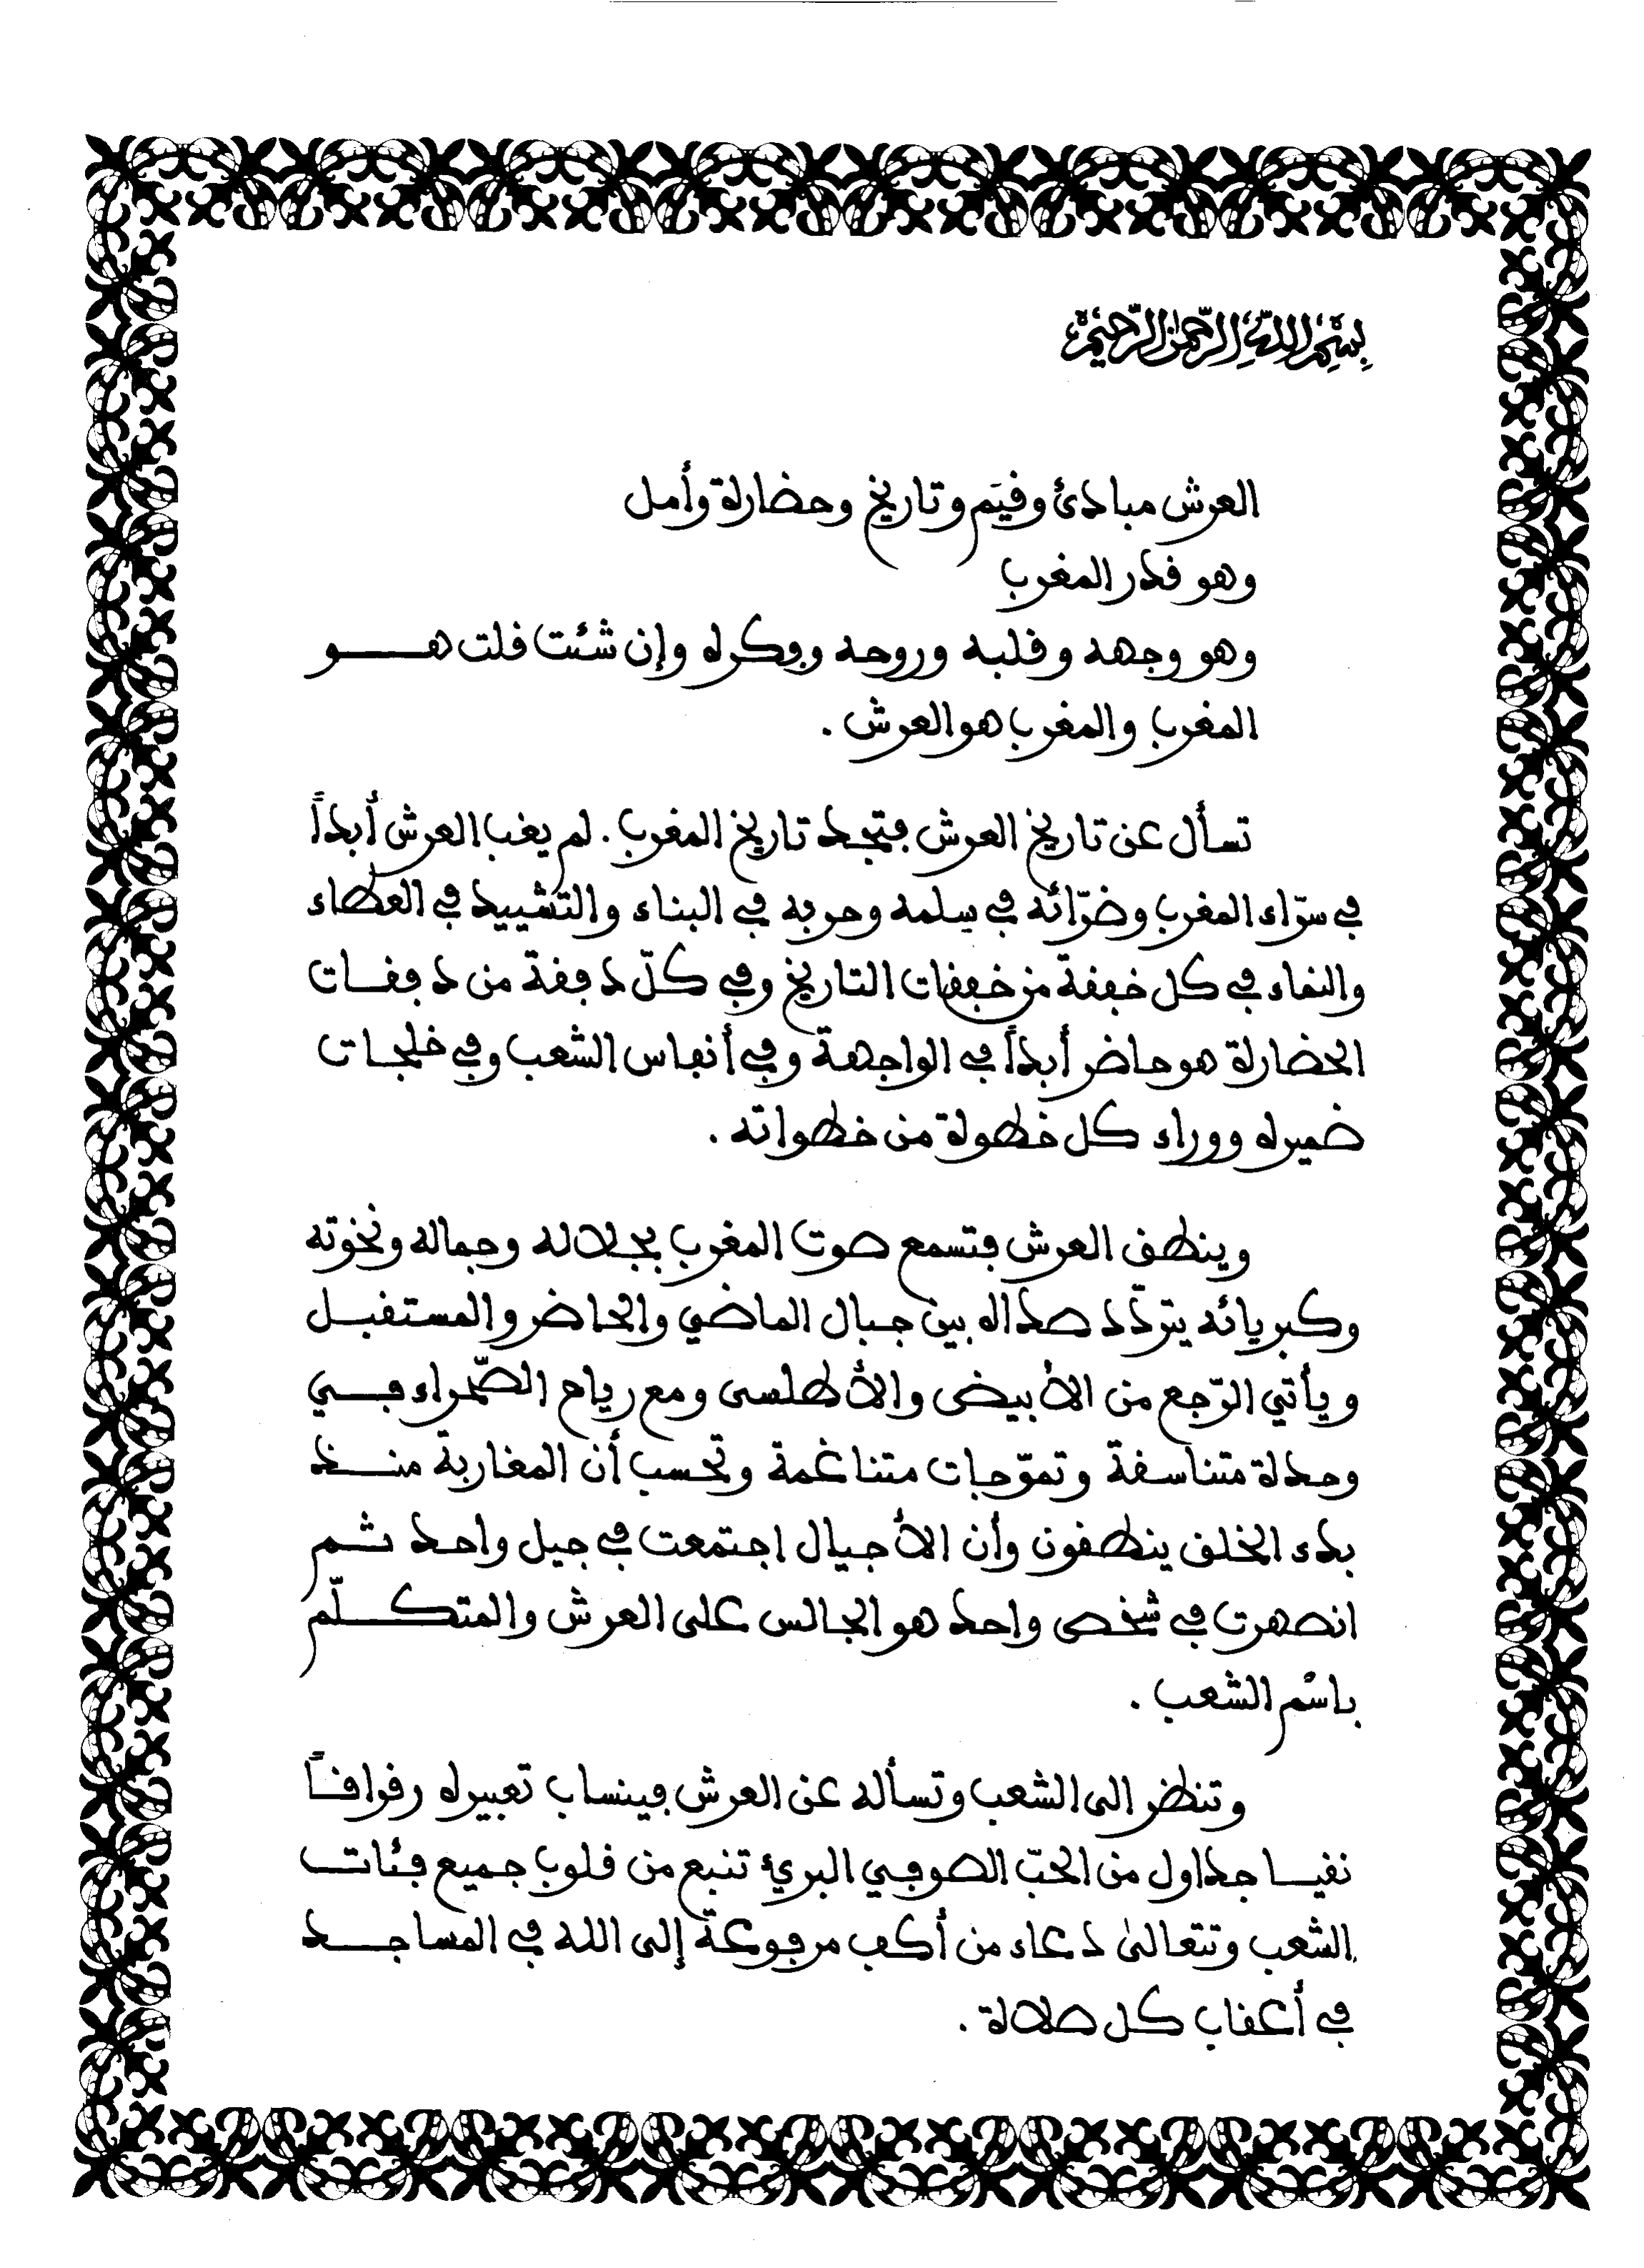 بِسْمِ اللَّهِ الرَّحْمٰنِ الرَّحِيمِ
العرش مبادئ وقيَم وتاريخ وحضارة وأمل
وهو قدر المغرب
وهو وجهه وقلبه وروحه وفكره وإن شئت قلت هـــو
المغرب والمغرب هو العرش .
تسأل عن تاريخ العرش فتجد تاريخ المغرب . لم يغب العرش أبداً
في سرّاء المغرب وضرّائه في سلمه وحربه في البناء والتشييد في العطاء
والنماء في كل خفقة من خفقات التاريخ وفي كلّ دفقة من دفقـات
الحضارة هو حاضر أبداً في الواجهة وفي أنفاس الشعب وفي خلجـات
ضميره ووراء كل خطوة من خطواته .
وينطق العرش فتسمع صوت المغرب بجلاله وجماله ونخوته
وكبريائه يتردّد صداه بين جبال الماضي والحاضر والمستقبـل
ويأتي الرّجع من الأبيض والأطلسى ومع رياح الصّحراء فــي
وحدة متناسقة وتموّجات متناغمة وتحسب أن المغاربة منـــذ
بدء الخلق ينطقون وأن الأجيال اجتمعت في جيل واحد ثــم
انصهرت في شخص واحد هو الجالس على العرش والمتكـــلّم
باسْم الشعب .
وتنظر الى الشعب وتسأله عن العرش فينساب تعبيره رقراقـاً
نقيـا جداول من الحبّ الصوفي البريء تنبع من قلوب جميع فئاتـ
الشعب وتتعالىٰ دعاء من أكف مرفوعة إلى الله في المساجـــد
في أعقاب كل صلاة .